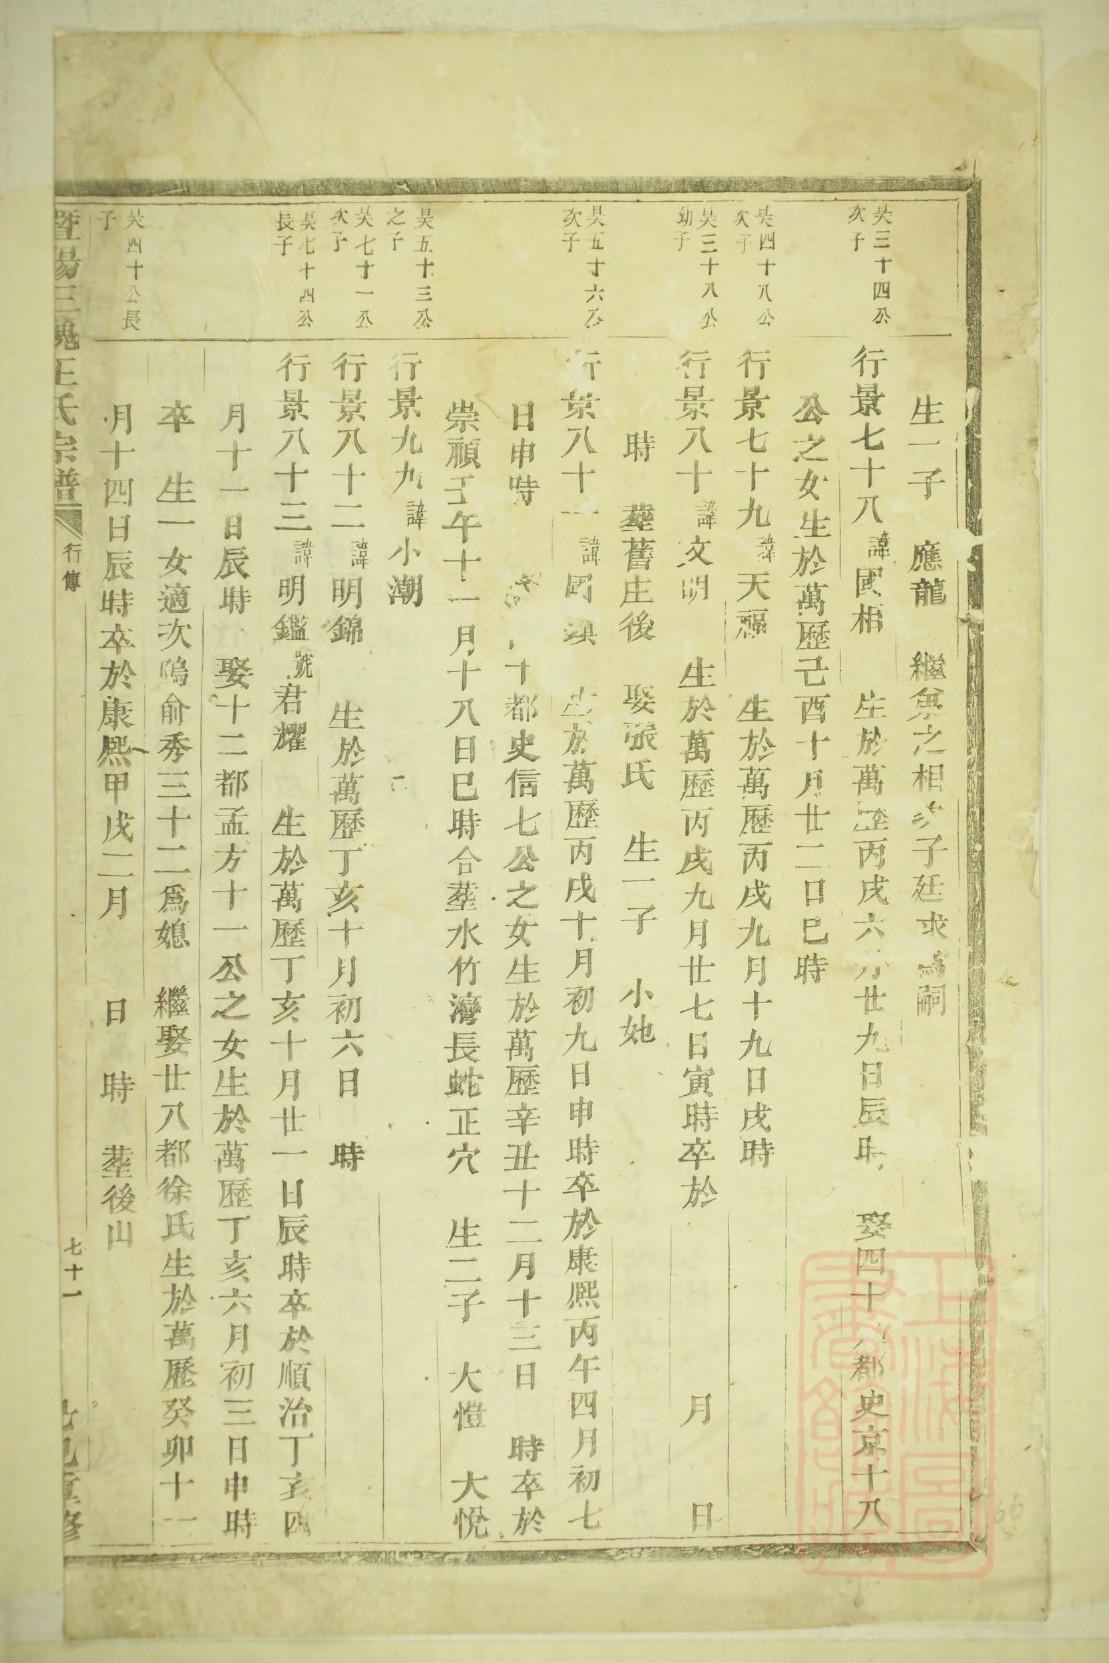 生一子 應龍 繼 之相 子廷求 嗣
昊三十四公
次子
行景七十八諱國相 生於萬歷丙戌六月廿九日辰時 娶四十 都史京十八
公之女生於萬歷己酉十月廿二日巳時
昊四十八公
次子
行景七十九諱天福 生於萬歷丙戌九月十九日戌時
昊三十八公
幼子
行景八十諱文明 生於萬歷丙戌九月廿七日寅時卒於 月 日
時 塟舊庄後 娶張氏 生一子 小她
昊五十六公
次子
行景八十一諱國 生於萬歷丙戌十月初九日申時卒於康熙丙午四月初七
日申時 十都史信七公之女生於萬歷辛丑十二月十三日 時卒於
崇禎壬午十一月十八日巳時合塟水竹灣長蛇正穴 生二子 大愷 大悅
昊五十三公
之子
行景九九諱小潮
昊七十一公
次子
行景八十二諱明錦 生於萬歷丁亥十月初六日 時
昊七十四公
長子
行景八十三諱明鑑號君耀 生於萬歷丁亥十月廿一日辰時卒於順治丁亥四
月十一日辰時 娶十二都孟方十一公之女生於萬歷丁亥六月初三日申時
卒 生一女適次塢俞秀三十二爲媳 繼娶廿八都徐氏生於萬歷癸卯十一
昊四十公長
子
月十四日辰時卒於康熙甲戌二月 日 時 塟後山
暨陽三槐王氏宗譜 行傳 七十一 重修
上海圖
書館藏